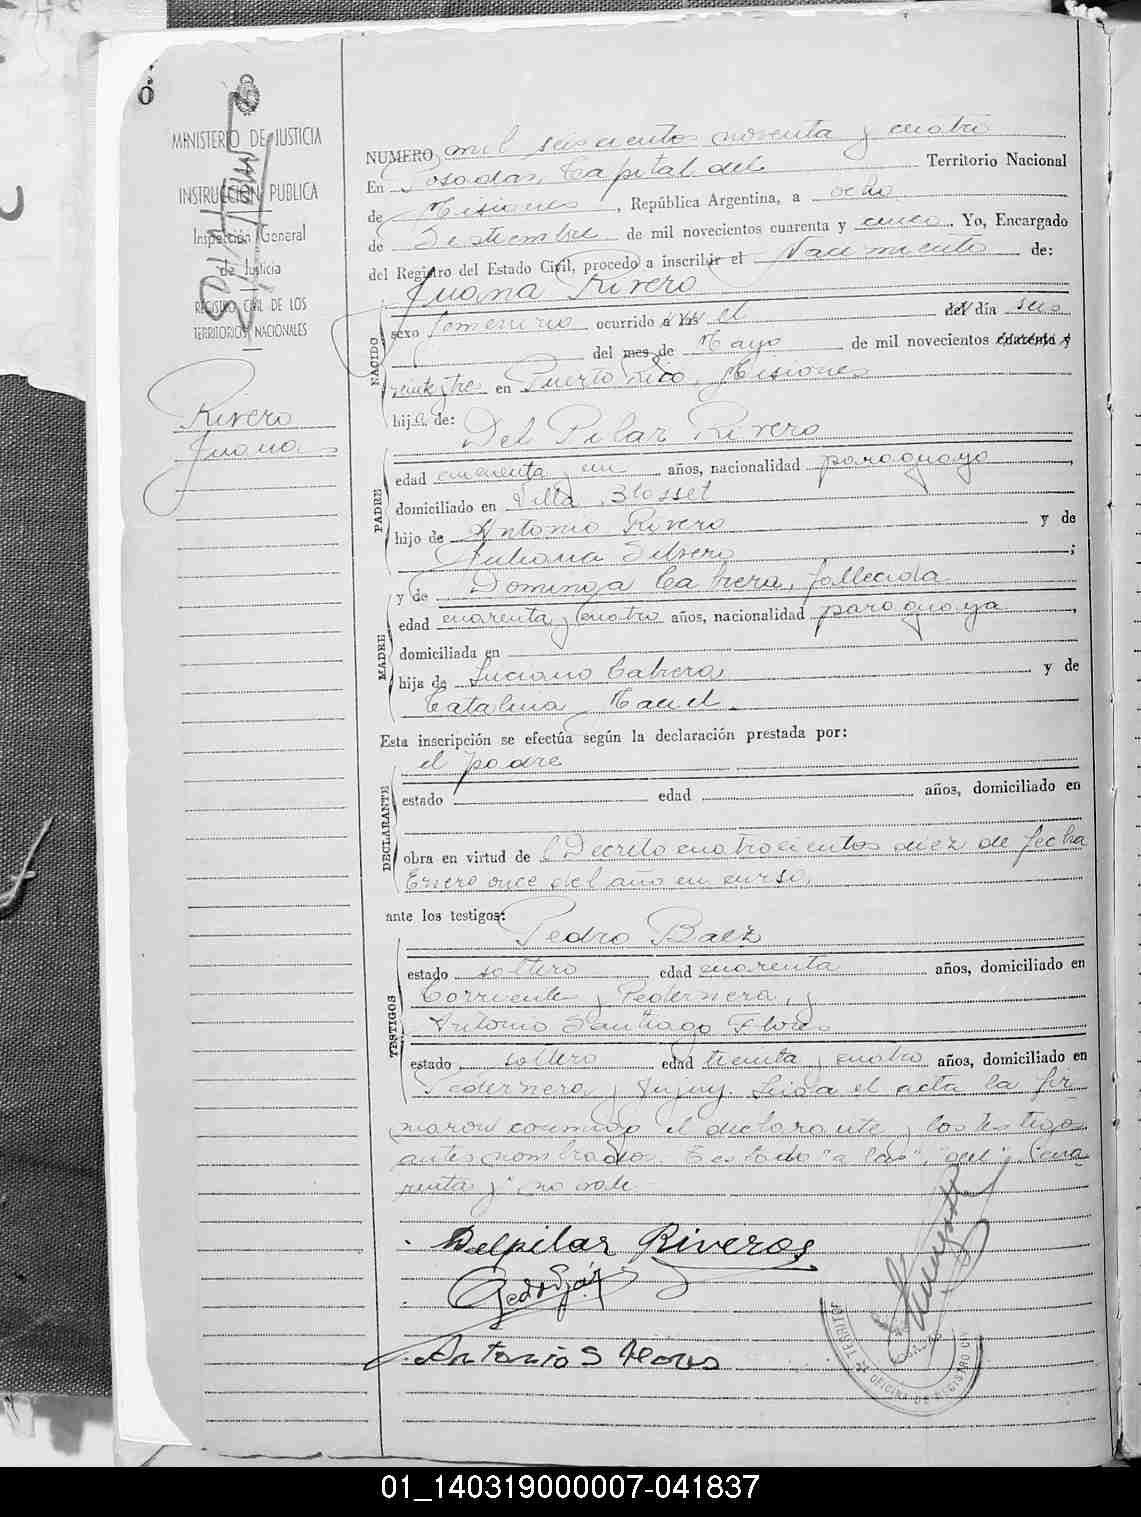 MINISTERIO DE JUSTICIA
INSTRUCCIÓN PUBLICA
Inspección General
de Justicia
REGISTRO CIVIL DE LOS
TERRITORIOS NACIONALES
Rivero
Juana
NUMERO mil seiscientos noventa y cuatro
En Posadas, Capital del Territorio Nacional
de Misiones, República Argentina, a ocho
de Setiembre de mil novecientos cuarenta y cinco. Yo, Encargado
del Registro del Estado Civil, procedo a inscribir el Nacimiento de:
Juana Rivero
NACIDO
sexo femenino ocurrido a las el del día seis
del mes de Mayo de mil novecientos cuarenta y
veintitre en Puerto Rico, Misiones
hija de: Del Pilar Rivero
PADRE
edad cuarenta y un años, nacionalidad paraguayo,
domiciliado en Villa Blosset
hijo de Antonio Rivero y de
Juliana Silvero;
y de Dominga Cabrera, fallecida
MADRE
edad cuarenta y cuatro años, nacionalidad paraguaya,
domiciliada en
hija de Luciano Cabrera y de
Catalina Maciel.
Esta inscripción se efectúa según la declaración prestada por:
el padre
DECLARANTE
estado edad años, domiciliado en
obra en virtud de l Decreto cuatrocientos diez de fecha
Enero once del año en curso,
ante los testigos: Pedro Baez
TESTIGOS
estado soltero edad cuarenta años, domiciliado en
Corrientes y Pedernera, y
Antonio Santiago Flores
estado soltero edad treinta y cuatro años, domiciliado en
Pedernera y Jujuy. Leida el acta la fir
maron conmigo el declarante y los testigos
antes nombrados. Testado "a las", "del" y "cua
renta y" no vale.
Delpilar Riveros
Antonio S Flores
OFICINA DE REGISTRO
01_140319000007-041837